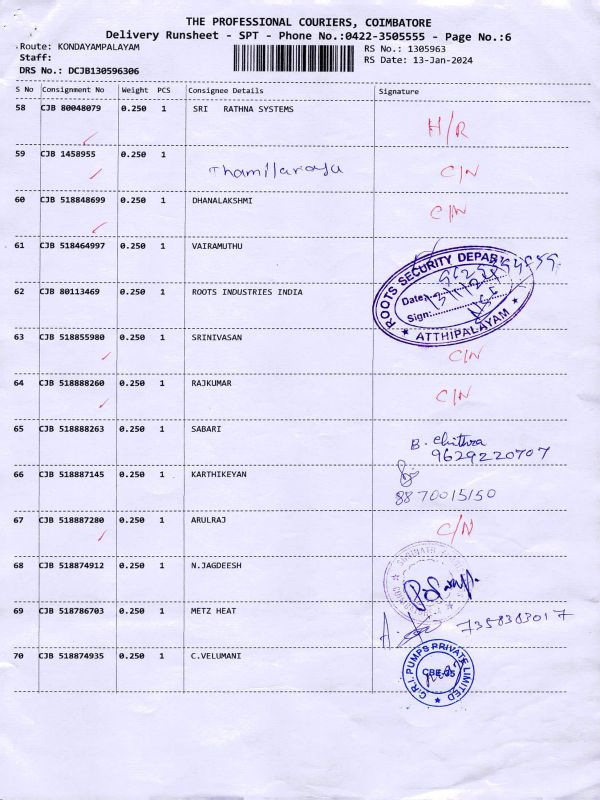 THE PROFESSIONAL COURIERS, COIMBATORE
Delivery Runsheet - SPT - Phone No.:0422-3505555 - Page No.:6
Route: KONDAYAMPALAYAM RS No.: 1305963
Staff: RS Date: 13-Jan-2024
DRS No.: DCJB130596306
S No Consignment No Weight PCS Consignee Details Signature
58 CJB 80048079 0.250 1 SRI RATHNA SYSTEMS H/R
59 CJB 1458955 0.250 1 Thamilaraya C/N
60 CJB 518848699 0.250 1 DHANALAKSHMI C/N
61 CJB 518464997 0.250 1 VAIRAMUTHU
62 CJB 80113469 0.250 1 ROOTS INDUSTRIES INDIA
ROOTS SECURITY DEPAR
Date:
Sign:
ATTHIPALAYAM
63 CJB 518855980 0.250 1 SRINIVASAN C/N
64 CJB 518888260 0.250 1 RAJKUMAR C/N
65 CJB 518888263 0.250 1 SABARI B. Chithra
9629220707
66 CJB 518887145 0.250 1 KARTHIKEYAN
8870015150
67 CJB 518887280 0.250 1 ARULRAJ C/N
68 CJB 518874912 0.250 1 N.JAGDEESH
69 CJB 518786703 0.250 1 METZ HEAT 7358383017
70 CJB 518874935 0.250 1 C.VELUMANI
C.R.I. PUMPS PRIVATE LIMITED